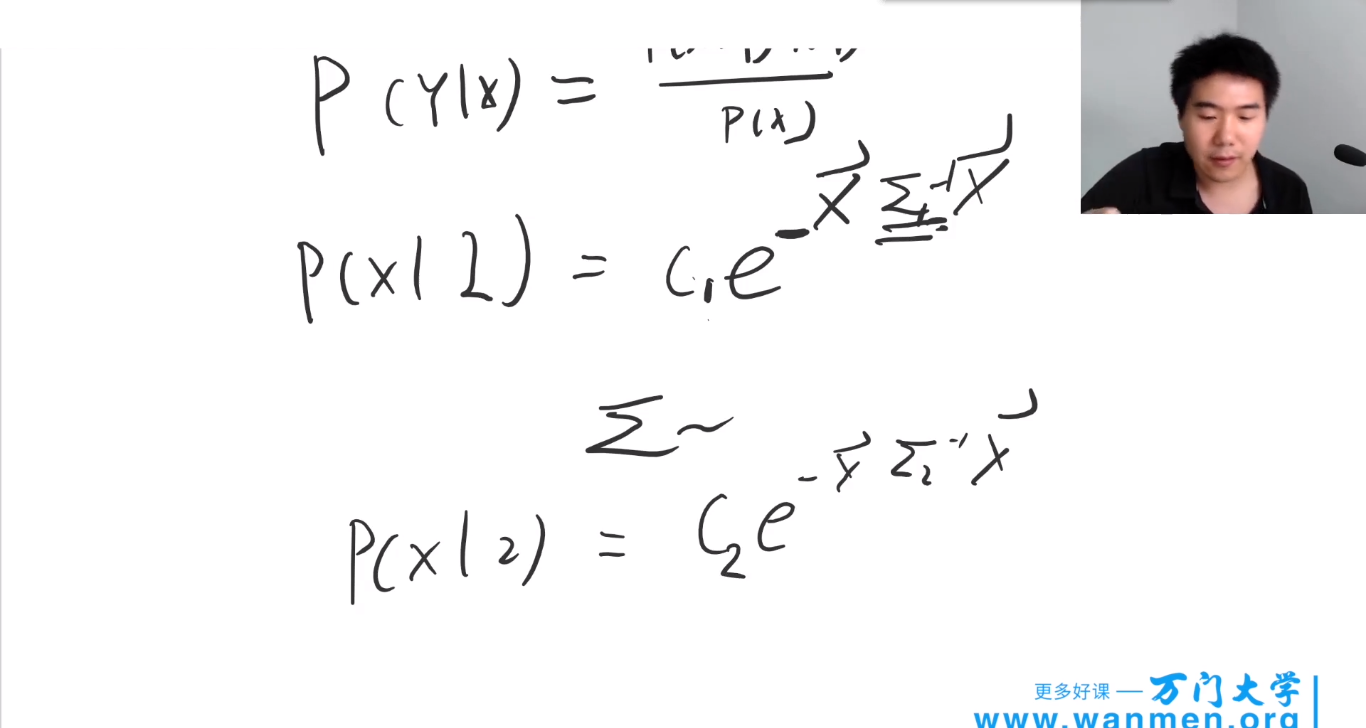 P(Y|X) =
P(X)
P(X|1) = C₁e^{-X⃗ Σ₁⁻¹ X⃗}
Σ~
P(X|2) = C₂e^{-X⃗ Σ₂⁻¹ X⃗}
更多好课 — 万门大学
www.wanmen.org